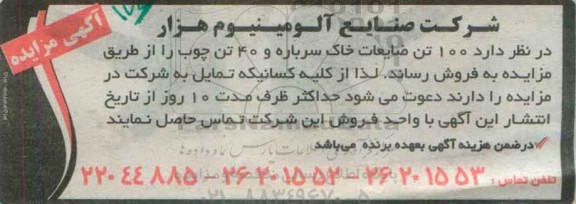 آگهی مزایده
شرکت صنایع آلومینیوم هزار
در نظر دارد ۱۰۰ تن ضایعات خاک سرباره و ۴۰ تن چوب را از طریق
مزایده به فروش رساند. لذا از کلیه کسانیکه تمایل به شرکت در
مزایده را دارند دعوت می شود حداکثر ظرف مدت ۱۰ روز از تاریخ
انتشار این آگهی با واحد فروش این شرکت تماس حاصل نمایند
درضمن هزینه آگهی بعهده برنده می‌باشد
تلفن تماس: ۲۶۲۰۱۵۵۳ - ۲۶۲۰۱۵۵۲ - ۲۲۰۴۴۸۸۵
۰۲۱-۸۸۳۴۹۶۷۰-۵